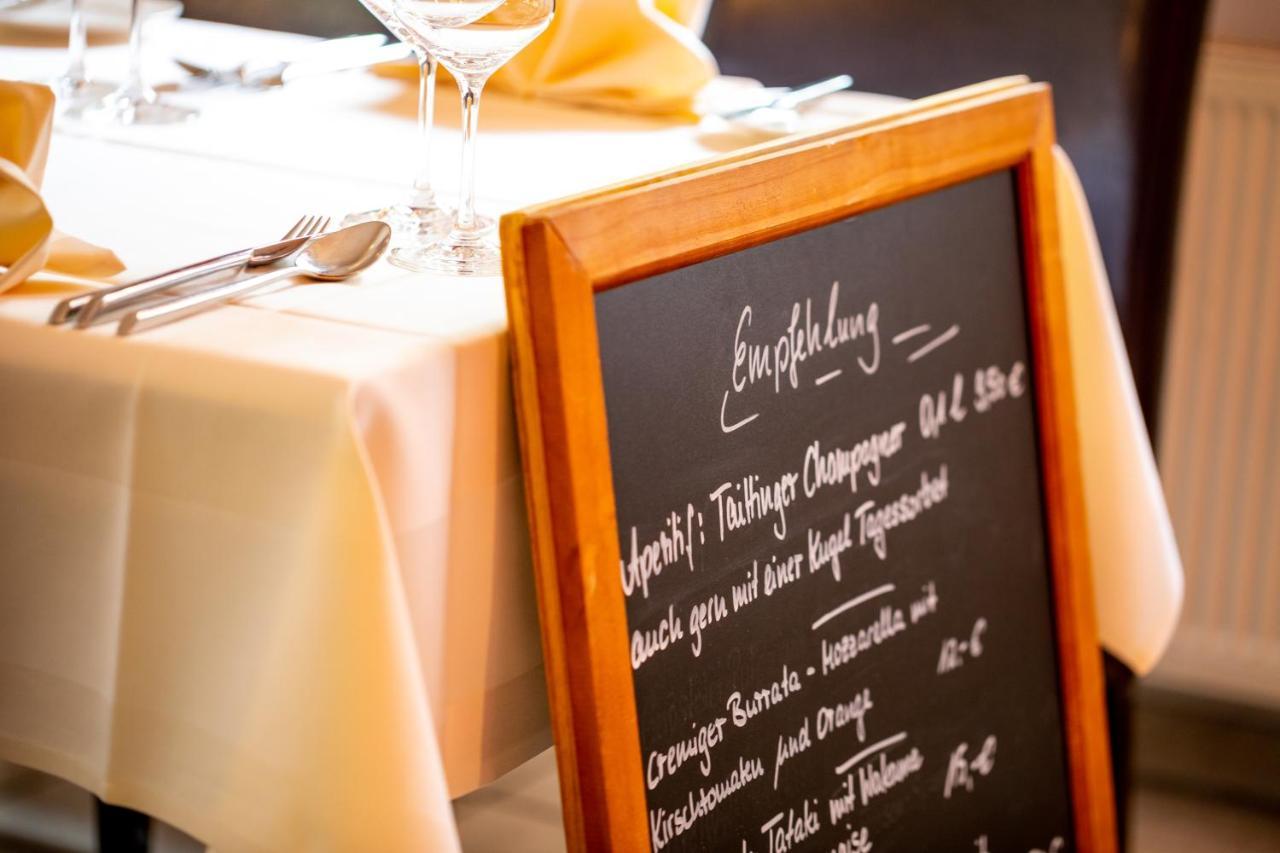 Empfehlung
Aperitif: Taittinger Champagner 0,1 l 9,50 €
auch gern mit einer Kugel Tagessorbet
Cremiger Burrata - Mozzarella mit
Kirschtomaten und Orange 12.- €
Tataki mit Wakame 15,- €